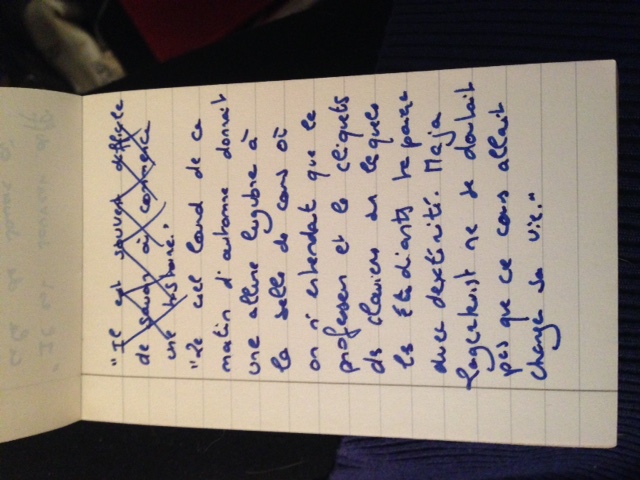 "Il est souvent difficile
de savoir où commence
une histoire."
"Le ciel lourd de ce
matin d'automne donnait
une allure lugubre à
la salle de cours où
on n'entendait que le
professeur et le cliquetis
de claviers sur lesquels
les étudiants tapaient
avec dextérité. Maja
Lagerkvist ne se doutait
pas que ce cours allait
changer sa vie."